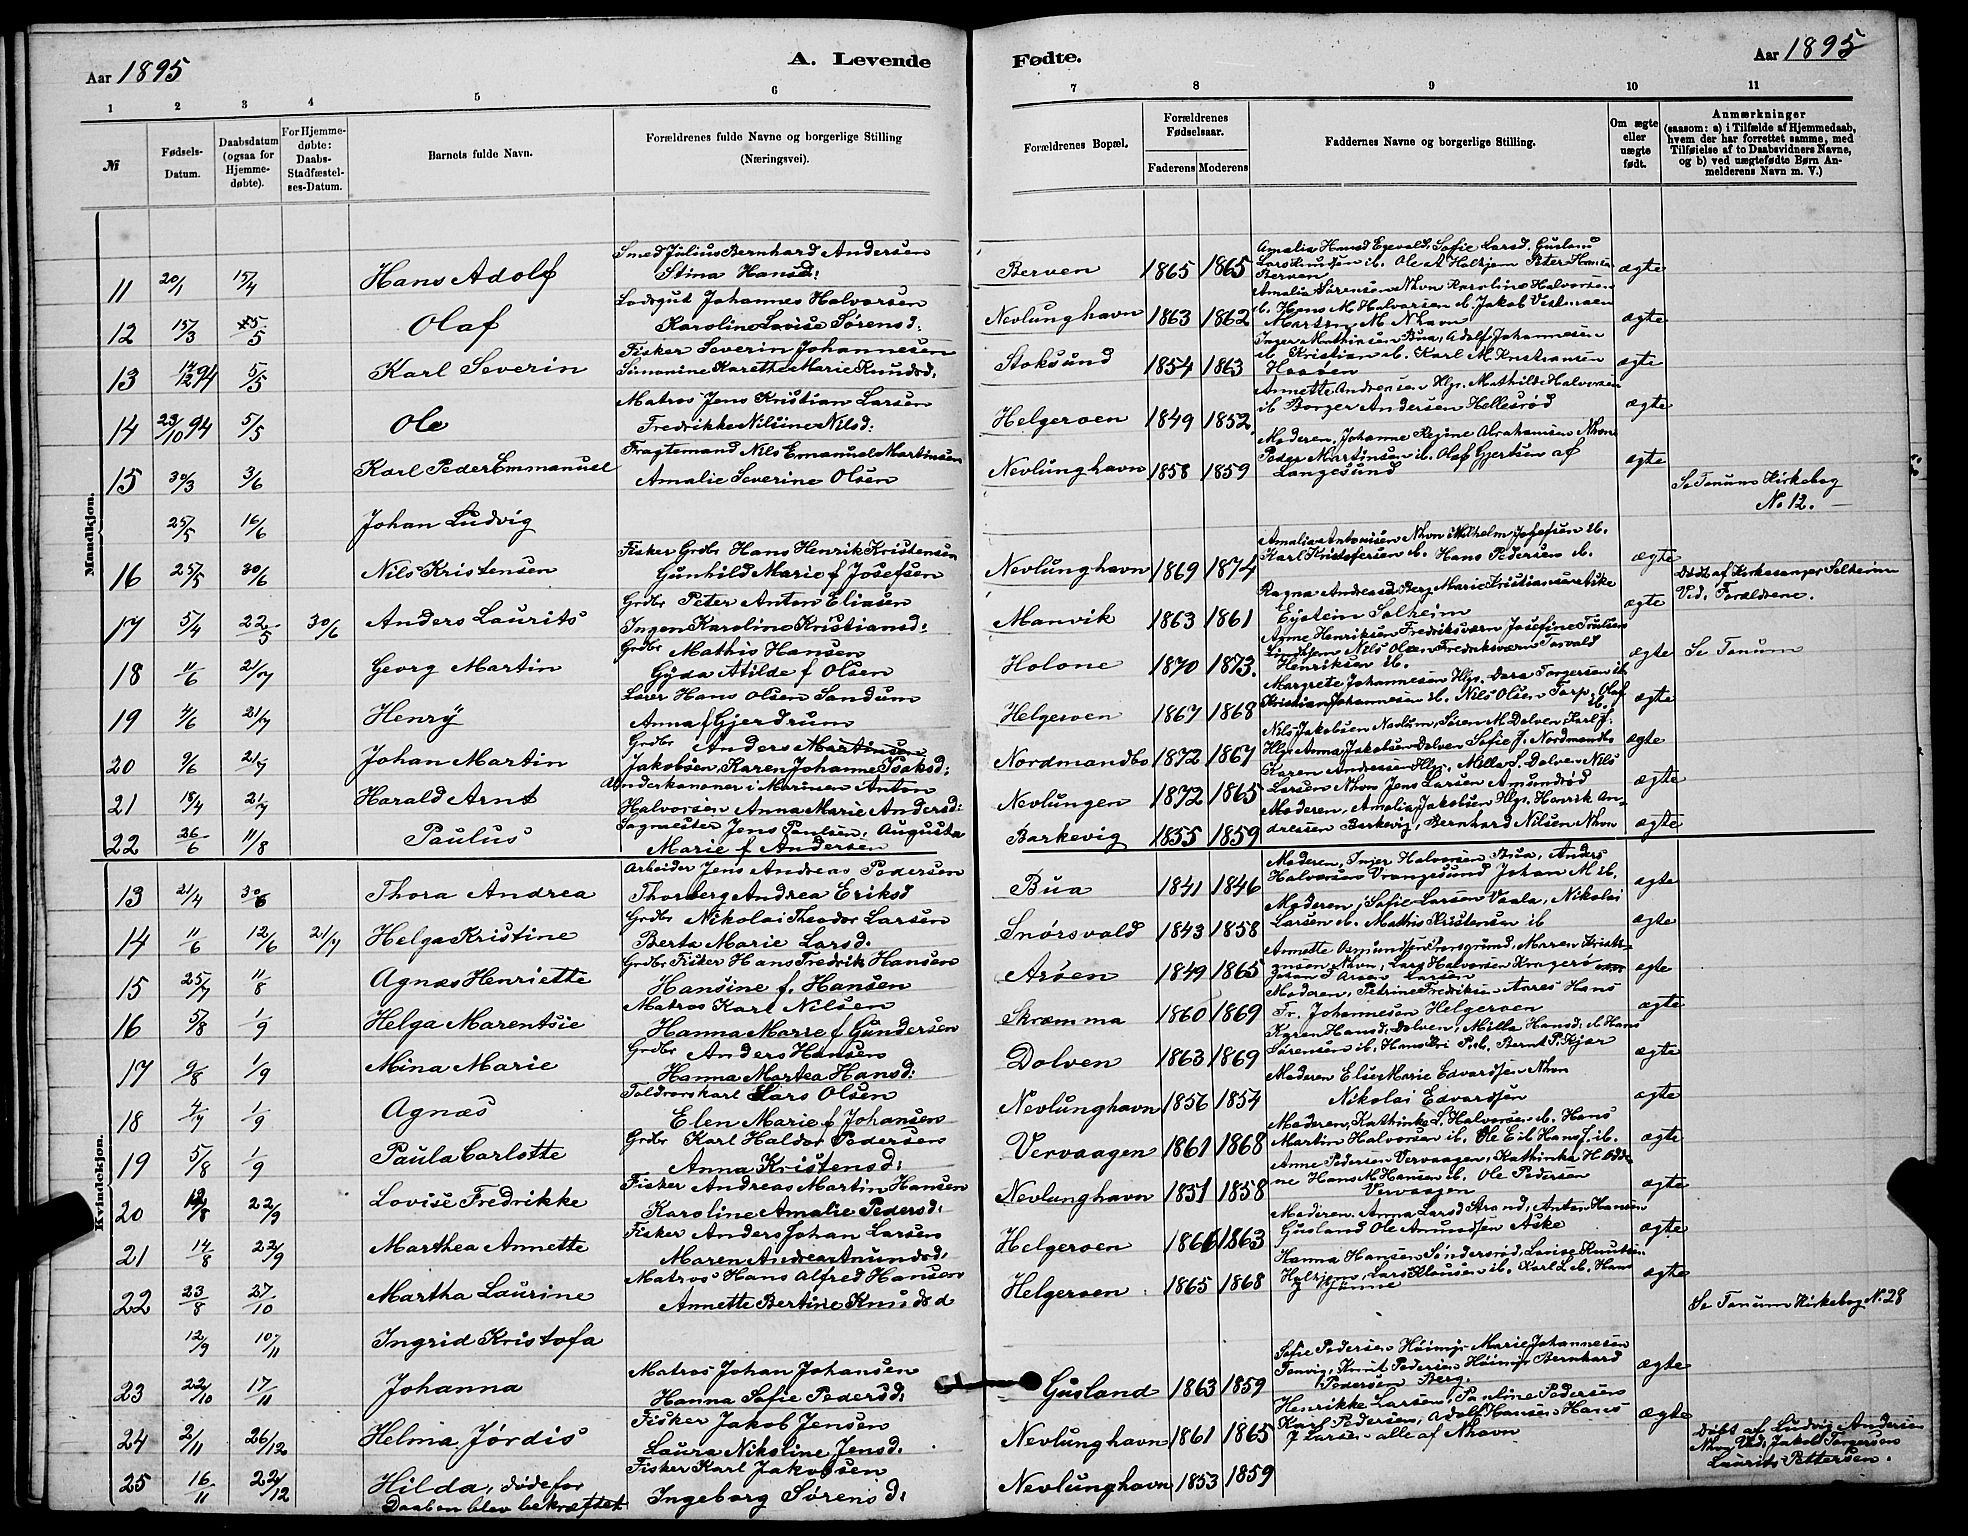 Aar 1895
A. Levende
Fødte.
Aar 1895
1 2 3 4 5 6 7 8 9 10 11
№
Fødsels-Datum.
Daabsdatum (ogsaa for Hjemme-døbte).
For Hjemme-døbte: Daabs-Stadfæstel-ses-Datum.
Barnets fulde Navn.
Forældrenes fulde Navne og borgerlige Stilling (Næringsvei).
Forældrenes Bopæl.
Forældrenes Fødselsaar.
Faderens Moderens
Faddernes Navne og borgerlige Stilling.
Om ægte eller uægte født.
Anmærkninger
(saasom: a) i Tilfælde af Hjemmedaab, hvem der har forrettet samme, med Tilføielse af to Daabsvidners Navne, og b) ved uægtefødte Børn An-melderens Navn m. V.)
Mandkjøn.
11 20/1 15/4 Hans Adolf Smed Julius Bernhard Andersen Stina Hansd: Berven 1865 1865 Amalia Hansd Egevald, Sofie Larsd. Gusland Lars Knudsen ib. Ole A Holtjem Peter Hansen Berven ægte
12 15/3 5/5 Olaf Lodsgut Johannes Halvorsen Karoline Lovise Sørensd: Nevlunghavn 1863 1862 Amalia Sørensen Nhvn Karoline Halvorsen ib. Hans M Halvorsen ib. Jakob Vestmoen Morten M Nhavn ægte
13 14/12 94 5/5 Karl Severin Fisker Severin Johannesen Simonine Karethe Marie Knudsd. Stoksund 1854 1863 Inger Mathisen Bua, Adolf Johannesen ib Kristian ib. Karl M Kristiansen Haaøen ægte
14 23/10 94 5/5 Ole Matros Jens Kristian Larsen Fredrikke Nilsine Nilsd: Helgeroen 1849 1852 Annette Andresen Hlgr. Mathilde Halvorsen ib Borger Andersen Hellesrød ægte
15 30/3 3/6 Karl Peder Emmanuel Fragtemand Nils Emanuel Martinsen Amalie Severine Olsen Nevlunghavn 1858 1859 Moderen, Johanne Regine Abrahamsen Nhvn Peder Martinsen ib. Olaf Gjertsen af Langesund ægte
25/5 16/6 Johan Ludvig Se Tanum Kirkebog N. 12.
16 25/5 30/6 Nils Kristensen Fisker Grdbr Hans Henrik Kristensen Gunhild Marie f Josefsen Nevlunghavn 1869 1874 Amalia Antonisen Nhvn Wilhelm Josefsen ib. Karl Kristofersen ib. Hans Pedersen ib. ægte
17 5/4 22/5 30/6 Anders Laurits Grdbr Peter Anton Eliasen Ingen Karoline Kristiansd: Manvik 1863 1861 Ragna Andreasd Berg Marie Kristiansen Aske Eystein Solheim ægte Døbt af Kirkesanger Solheim Vid. Forældrene.
18 11/6 21/7 Georg Martin Grdbr Mathis Hansen Gyda Atilde f Olsen Holone 1870 1873. Anne Henriksen Fredriksværn Josefine Trulsen Lindhjem Nils Olsen Fredriksværn Torvald Henriksen ib. ægte Se Tanum
19 4/6 21/7 Henry Hans Olsen Sandum Anna f Gjerdrum Helgeroen 1867 1868 Margrete Johannesen Hlgr. Dora Torgersen ib Kristian Johannesen ib. Nils Olsen Torp, Olaf ib. ægte
20 9/6 21/7 Johan Martin Grdbr Anders Martinsen Jakobsen, Karen Johanne Isaksd: Nordmandbo 1872 1867 Nils Jakobsen Navlum, Søren M Dolven, Karl J. Hlgr Anna Jakobsen Dolven Sofie J. Nordmandbo ægte
21 18/4 21/7 Harald Arnt Underkanoner i Marinen Anton Halvorsen Anna Marie Andersd: Nevlungen 1872 1865 Karen Andresen Hlgr. Milla L Dolven Nils Larsen Nhvn Jens Larsen Amundrød ægte
22 26/6 11/8 Paulus Sagmester Jens Paulsen, Augusta Marie f Andersen Barkevig 1855 1859 Moderen, Amalia Jakobsen Hlgr. Henrik Andresen Barkevig, Bernhard Nilsen Nhvn ægte
Kvindekjøn.
13 21/4 30/6 Thora Andrea Arbeider Jens Andreas Pedersen Thorberg Andrea Eriksd Bua 1841 1846 Moderen, Inger Halvorsen Bua, Anders Halvorsen Vrangsund Johan M ib. ægte
14 11/6 12/6 21/7 Helga Kristine Grdbr Nikolai Theodor Larsen Berta Marie Larsd. Snørsvald 1843 1858 Moderen, Sofie Larsen Vaala, Nikolai Larsen ib. Mathis Kristensen ib ægte
15 25/7 11/8 Agnæs Henriette Grdbr Fisker Hans Fredrik Hansen Hansine f. Hansen Arøen 1849 1865 Annette Asmundsen Porsgrund, Maren Kristignsen Nhvn, Lars Halvorsen Kragerø Johan S Arøen Larsen ægte
16 5/8 1/9 Helga Marentsie Matros Karl Nilsen Hanna Marie f Gundersen Skræmma 1860 1869 Moderen, Petrine Fredriksen Aarøs Hans Fr. Johannesen Helgeroen ægte
17 9/8 1/9 Mina Marie Grdbr Anders Hansen Hanna Martea Hansd: Dolven 1863 1869 Karen Hansd: Dolven, Milla Hansd: ib Hans Sørensen ib. Hans Kri P. ib. Bernt P. Kjær ægte
18 4/7 1/9 Agnæs Toldrorskarl Lars Olsen Elen Marie f Johansen Nevlunghavn 1856 1854 Moderen Else Marie Edvardsen Nhvn Nikolai Edvardsen ægte
19 5/8 1/9 Paula Carlotte Grdbr Karl Haldor Pedersen Anna Kristensd: Vervaagen 1861 1868 Moderen, Kathinka L Halvorsen ib. Hans Martin Halvorsen ib. Ole E ib Hans J. ib. ægte
20 12/8 22/9 Lovise Fredrikke Fisker Andreas Martin Hansen Karoline Amalie Pedersd: Nevlunghavn 1851 1858 Anne Pedersen Vervaagen, Kathinka H Oddene Hans M Hansen ib. Ole Pedersen Vervaagen ægte
21 14/8 22/9 Marthea Annette Fisker Anders Johan Larsen Maren Andrea Anundsd: Helgeroen 1866 1863 Moderen. Anna Larsd Strand, Anton Hansen Gusland Ole Anundsen Aske ægte
22 23/8 27/10 Martha Laurine Matros Hans Alfred Hansen Annette Bertine Knudsd Helgeroen 1865 1868 Hanna Hansen Søndersrød, Lovise Knutsen Holtjem, Lars Klausen ib. Karl L ib. Hans ægte
12/9 10/11 Ingrid Kristofa Se Tanum Kirkebog N. 28
23 22/10 17/11 Johanna Matros Johan Johansen Hanna Sofie Pedersd: Gusland 1863 1859 Sofie Pedersen Høimyr Marie Johannesen Tonvig, Knut Pedersen Høimyr Bernhard Pedersen Berg. ægte
24 2/11 26/12 Helma Jørdis Fisker Jakob Jensen Laura Nikoline Jensd. Nevlunghavn 1861 1865 Henrikke Larsen, Pauline Pedersen Karl Pedersen, Adolf Hansen Hans J Larsen alle af Nhavn ægte
25 16/11 22/12 Hilda, døde før Daaben blev bekræftet Fisker Karl Jakobsen Ingeborg Sørensd: Nevlunghavn 1853 1859 Døbt af Ludvig Andersen Nhvn, Vid. Jakob Torgersen Laurits Pettersen.